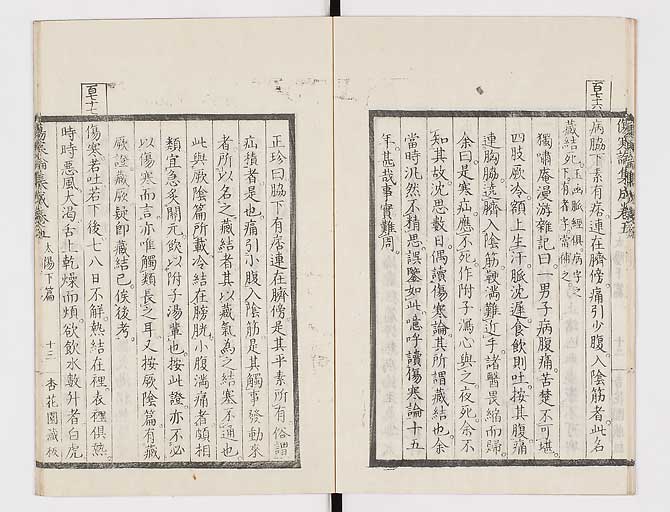 百七六
病脇下素有痞連在臍傍痛引少腹入陰筋者此名
藏結死
獨嘯庵漫游雜記曰一男子病腹痛苦楚不可堪
四肢厥冷額上生汗脈沈遲食飮則吐按其腹痛
連胸脇遶臍入陰筋鞕滿難近手諸醫畏縮而歸
余曰是寒疝應不死作附子瀉心與之夜死余不
知其故沈思數日偶讀傷寒論其所謂藏結也余
當時汎然不精思誤鑒如此噫呼讀傷寒論十五
年甚哉事實難周
正珍曰脇下有痞連在臍傍是其平素所有俗謂
疝積者是也痛引小腹入陰筋是其觸事發動來
者所以名之藏結者其以藏氣為之結塞不通也
此與厥陰篇所載冷結在膀胱小腹滿痛者頗相
類宜急灸關元飮以附子湯輩也按此證亦不必
以傷寒而言亦唯觸類長之耳又按厥陰篇有藏
厥證藏厥疑卽藏結已俟後考
百七十七
傷寒若吐若下後七八日不解熱結在裡表裡俱熱
時時惡風大渴舌上乾燥而煩欲飮水數升者白虎
傷寒論集成卷五 太陽下篇 十三 杏花園藏板